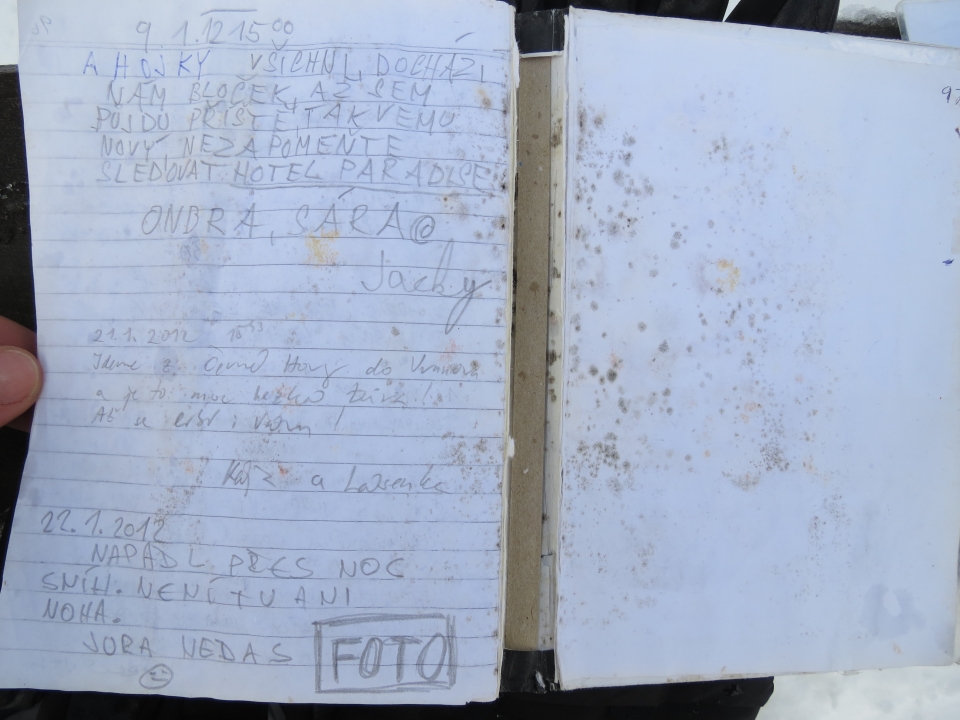 9.1.12 15 00
AHOJKY VŠICHNI, DOCHÁZÍ
NÁM BLOČEK, AŽ SEM
PŮJDU PŘÍŠTĚ, TAK VEMU
NOVÝ. NEZAPOMEŇTE
SLEDOVAT HOTEL PARADISE
ONDRA, SÁRA@
Jacky
21.1.2012
Jdeme z Černé Hory do
a je to moc hezká túra!
Ať se líbí i Vám!
Kája a
22.1.2012
NAPADL PŘES NOC
SNÍH. NENÍ TU ANI
NOHA.
JORA NEDAS
FOTO